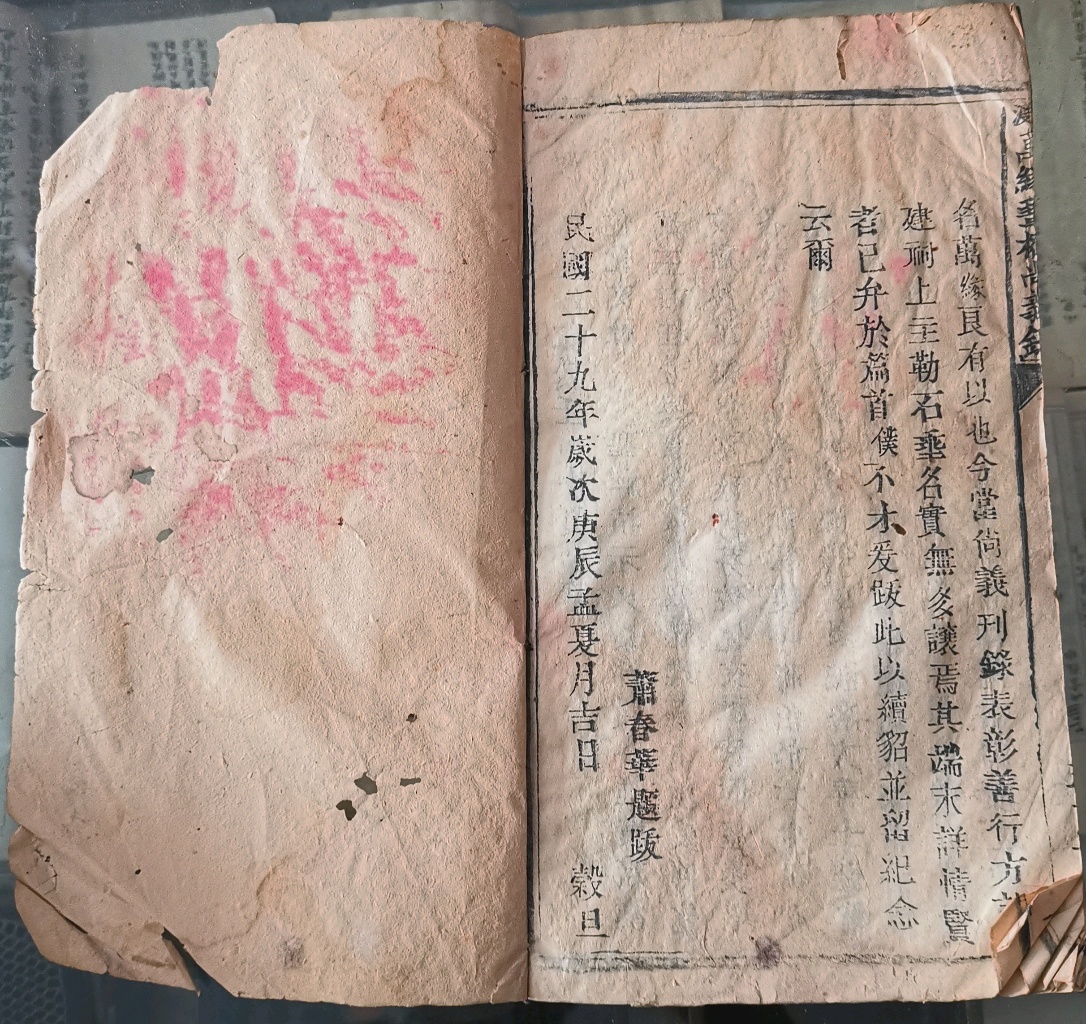 萬緣橋尚義錄
名萬緣良有以也今當尚義刊錄表彰善行方
建耐上主勒石垂名實無多讓焉其端末詳情賢
者已弁於篇首僕不才爰跋此以續貂並留紀念
云爾
蕭春華題跋
民國二十九年歲次庚辰孟夏月吉日 穀旦